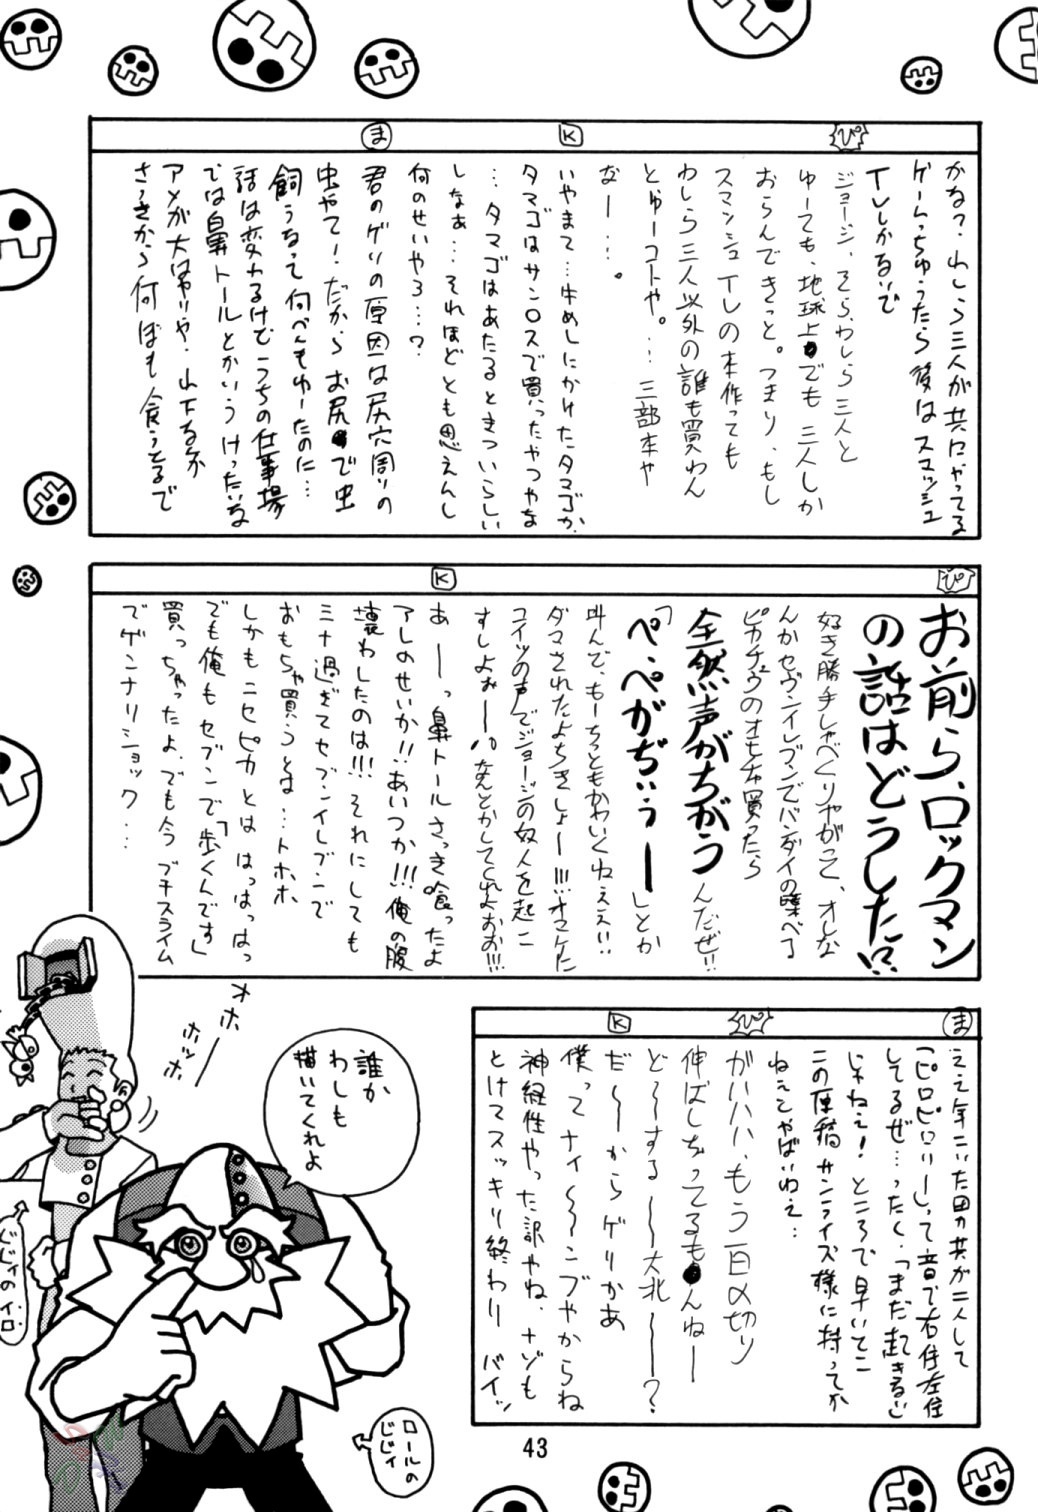 ぴ
K
ま
かな？わしら三人が共にやってる
ゲームっちゅうたら後はスマッシュ
TVしかないで
ジョージ、そら、わしら三人と
ゆーても、地球上でも三人しか
おらんできっと。つまり、もし
スマッシュTVの本作っても
わしら三人以外の誰も買わん
とゆーコトや。…三部本や
なー…。
いやまて…牛めしにかけたタマゴか、
タマゴはサンロスで買ったやつやな
…タマゴはあたるときついらしい
しなぁ…それほどとも思えんし
何のせいやろ…？
君のゲリの原因は尻穴周りの
虫やて！だから、お尻で虫
飼うなって何べんもゆーたのに…
話は変わるけどうちの仕事場
では鼻トールとかいうけったいな
アメが大はやりや、山下るか
さっきから何ぼも食うとるで
ぴ
K
お前ら、ロックマン
の話はどうした！？
好き勝手しゃべくりやがって、オレな
んかセヴンイレブンでバンダイの喋べる
ピカチュウのオモチャ買ったら
全然声がちがう んだぜ!!
「ぺ・ぺがぢぃぅー」とか
叫んで、もーちっともかわいくねぇぇ!!
ダマされたよちきしょー!!!オマケに
コイツの声でジョージの奴人を起こ
すしよぉー!!なんとかしてくれよおお!!!
あーーっ鼻トールさっき喰ったよ
アレのせいか!!あいつか!!!俺の腹
壊わしたのは!!!それにしても
ミナ過ぎてセブンイレブンで
おもちゃ買うとは…トホホ
しかもニセピカとははっはっはっ
でも俺もセブンで「歩くんです」
買っちゃったよ。でも今プチスライム
でゲンナリショック…
ま
ぴ
K
ええ年こいた田カ共が二人して
「ピロピロリー」って音で右往左往
してるぜ…ったく、「まだ起きるな」
じゃねぇ！ところで早いてこ
この原稿サンライズ様に持ってか
ねぇとやばいわえ…
がハハハ、もう一日〆切り
伸ばしちってるもんねー
ど〜〜する〜〜大北〜〜？
だ〜〜からゲリかあ
僕ってナイ〜〜ンブやからね
神経性やった訳やね、ナゾも
とけてスッキリ終わり バイッ
オホーー
ホッホ
誰か
わしも
描いてくれよ
じじいのイロ
ロールの
じじィ
43